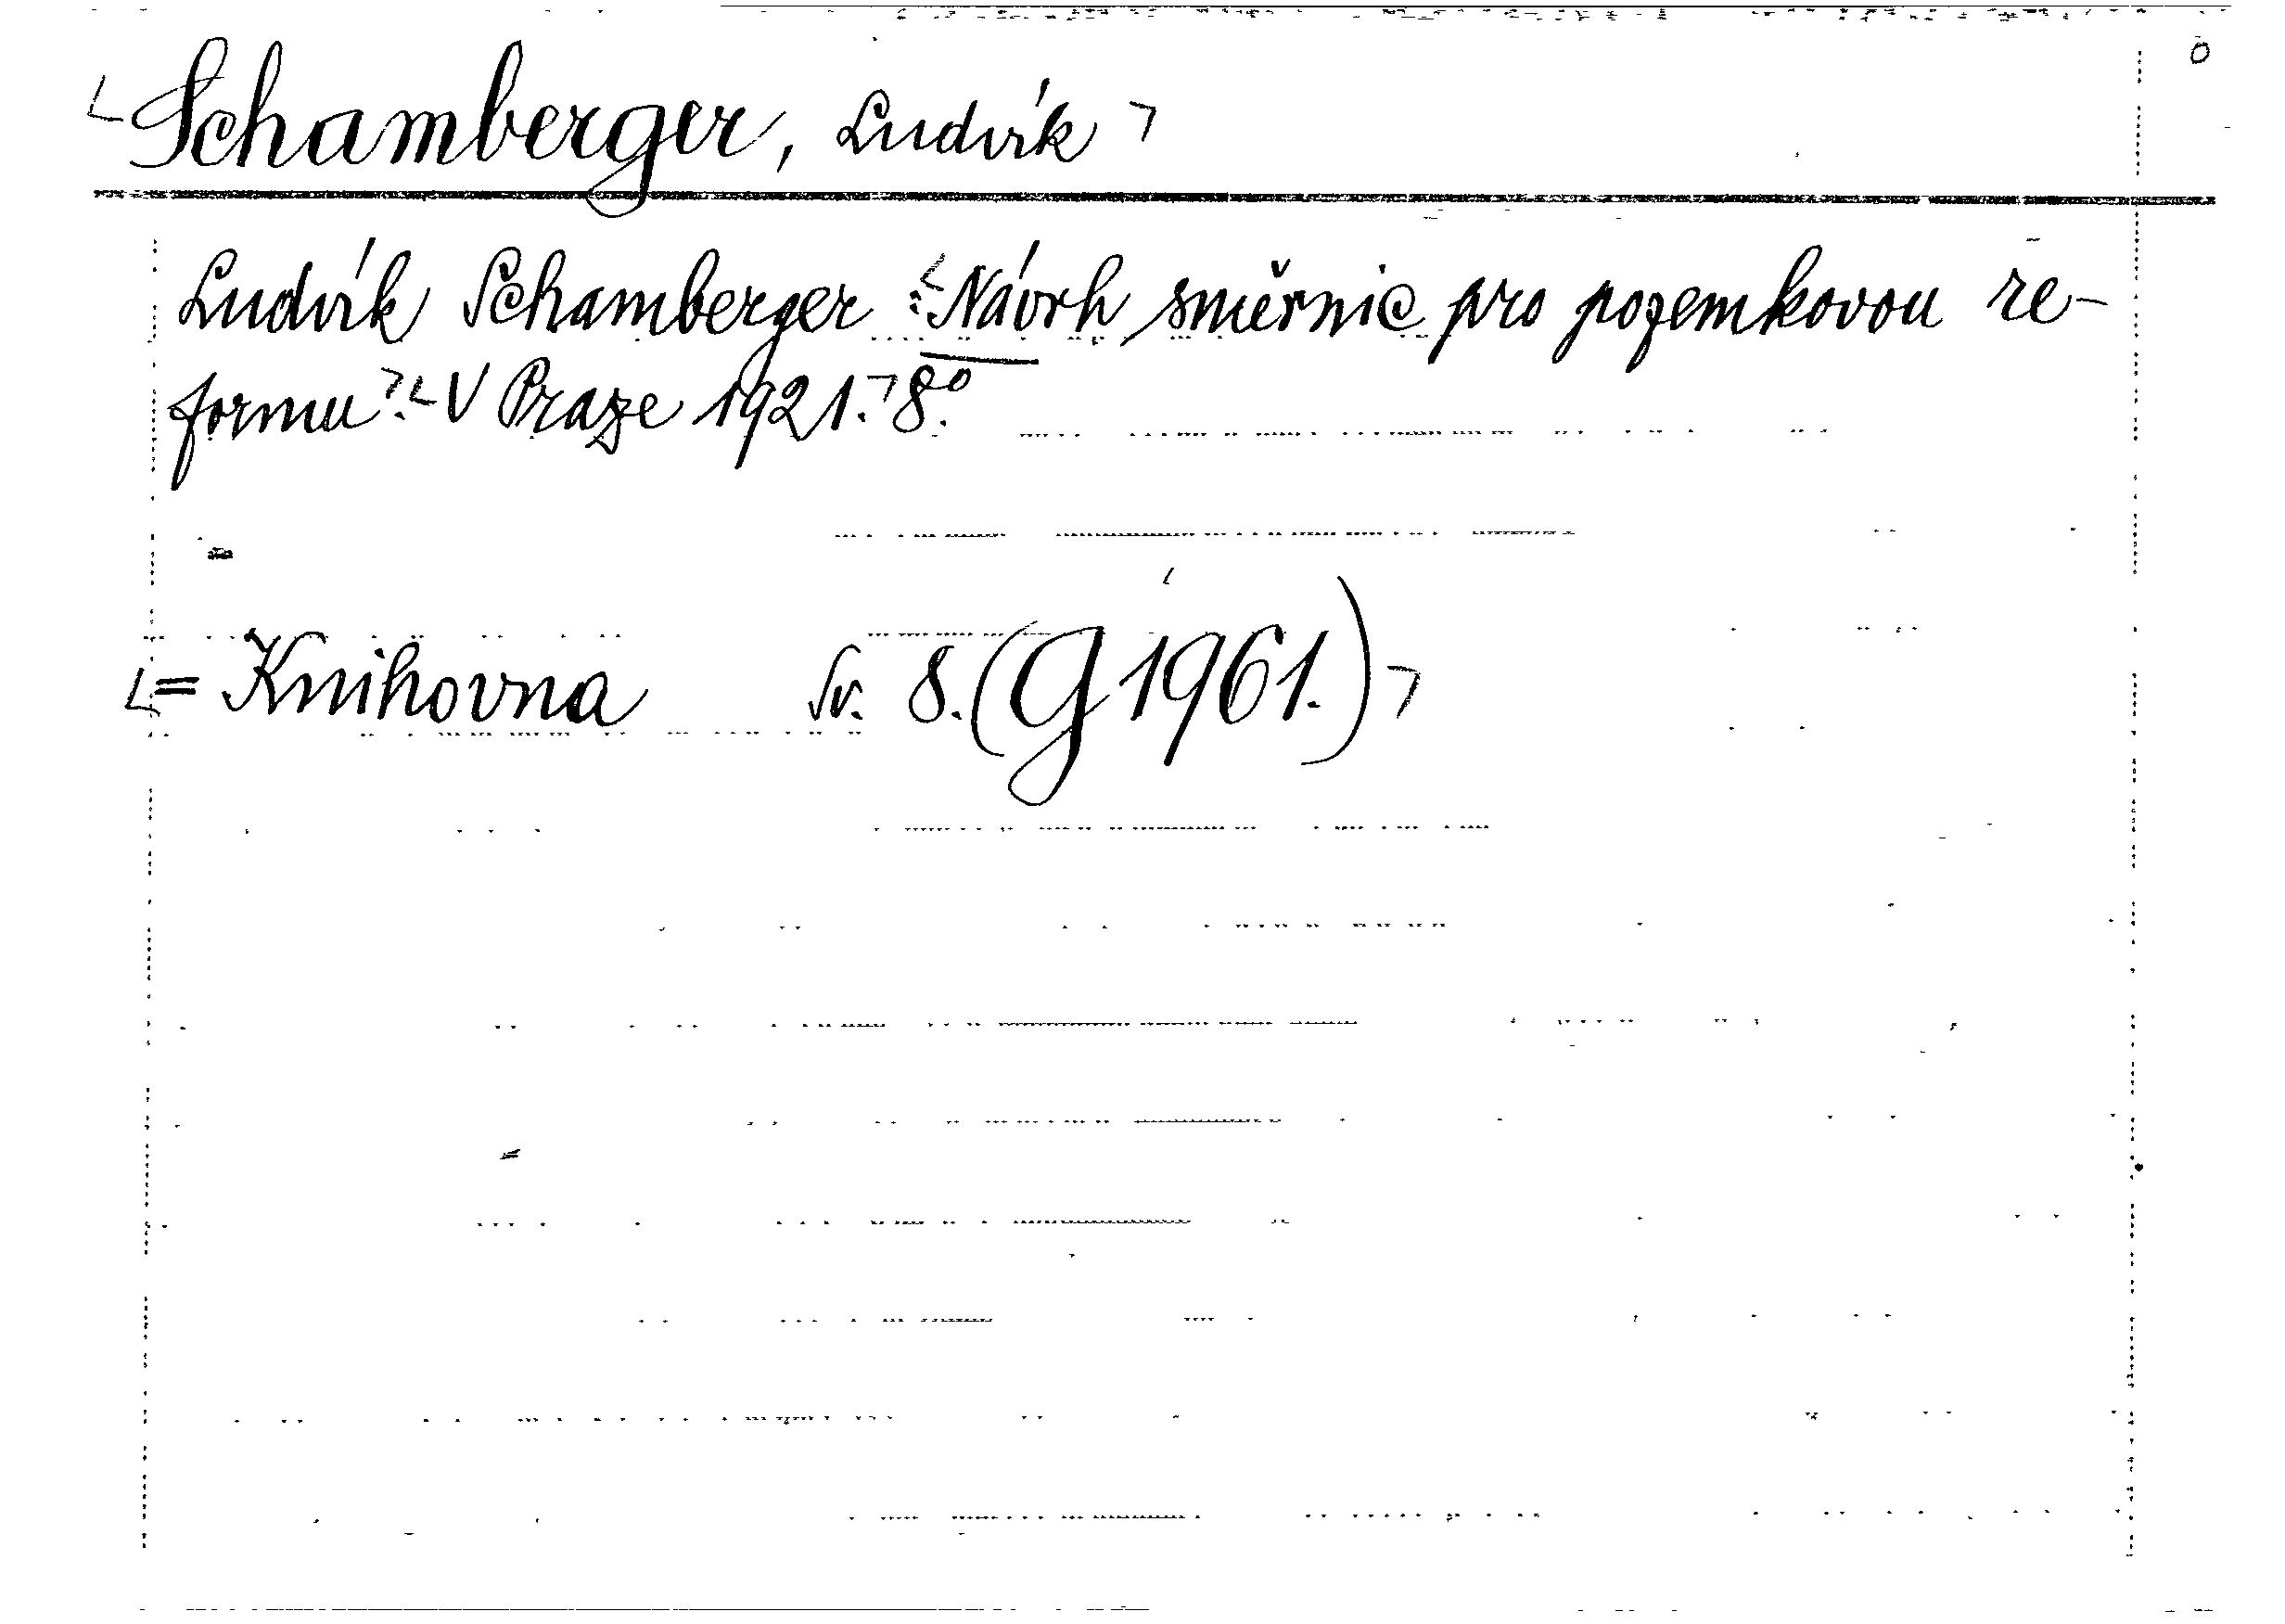 Schamberger, Ludvík
Ludvík Schamberger: Návrh směrnic pro pozemkovou re-
formu. V Praze 1921. 8º.
= Knihovna Sv. 8. (G 1961.)